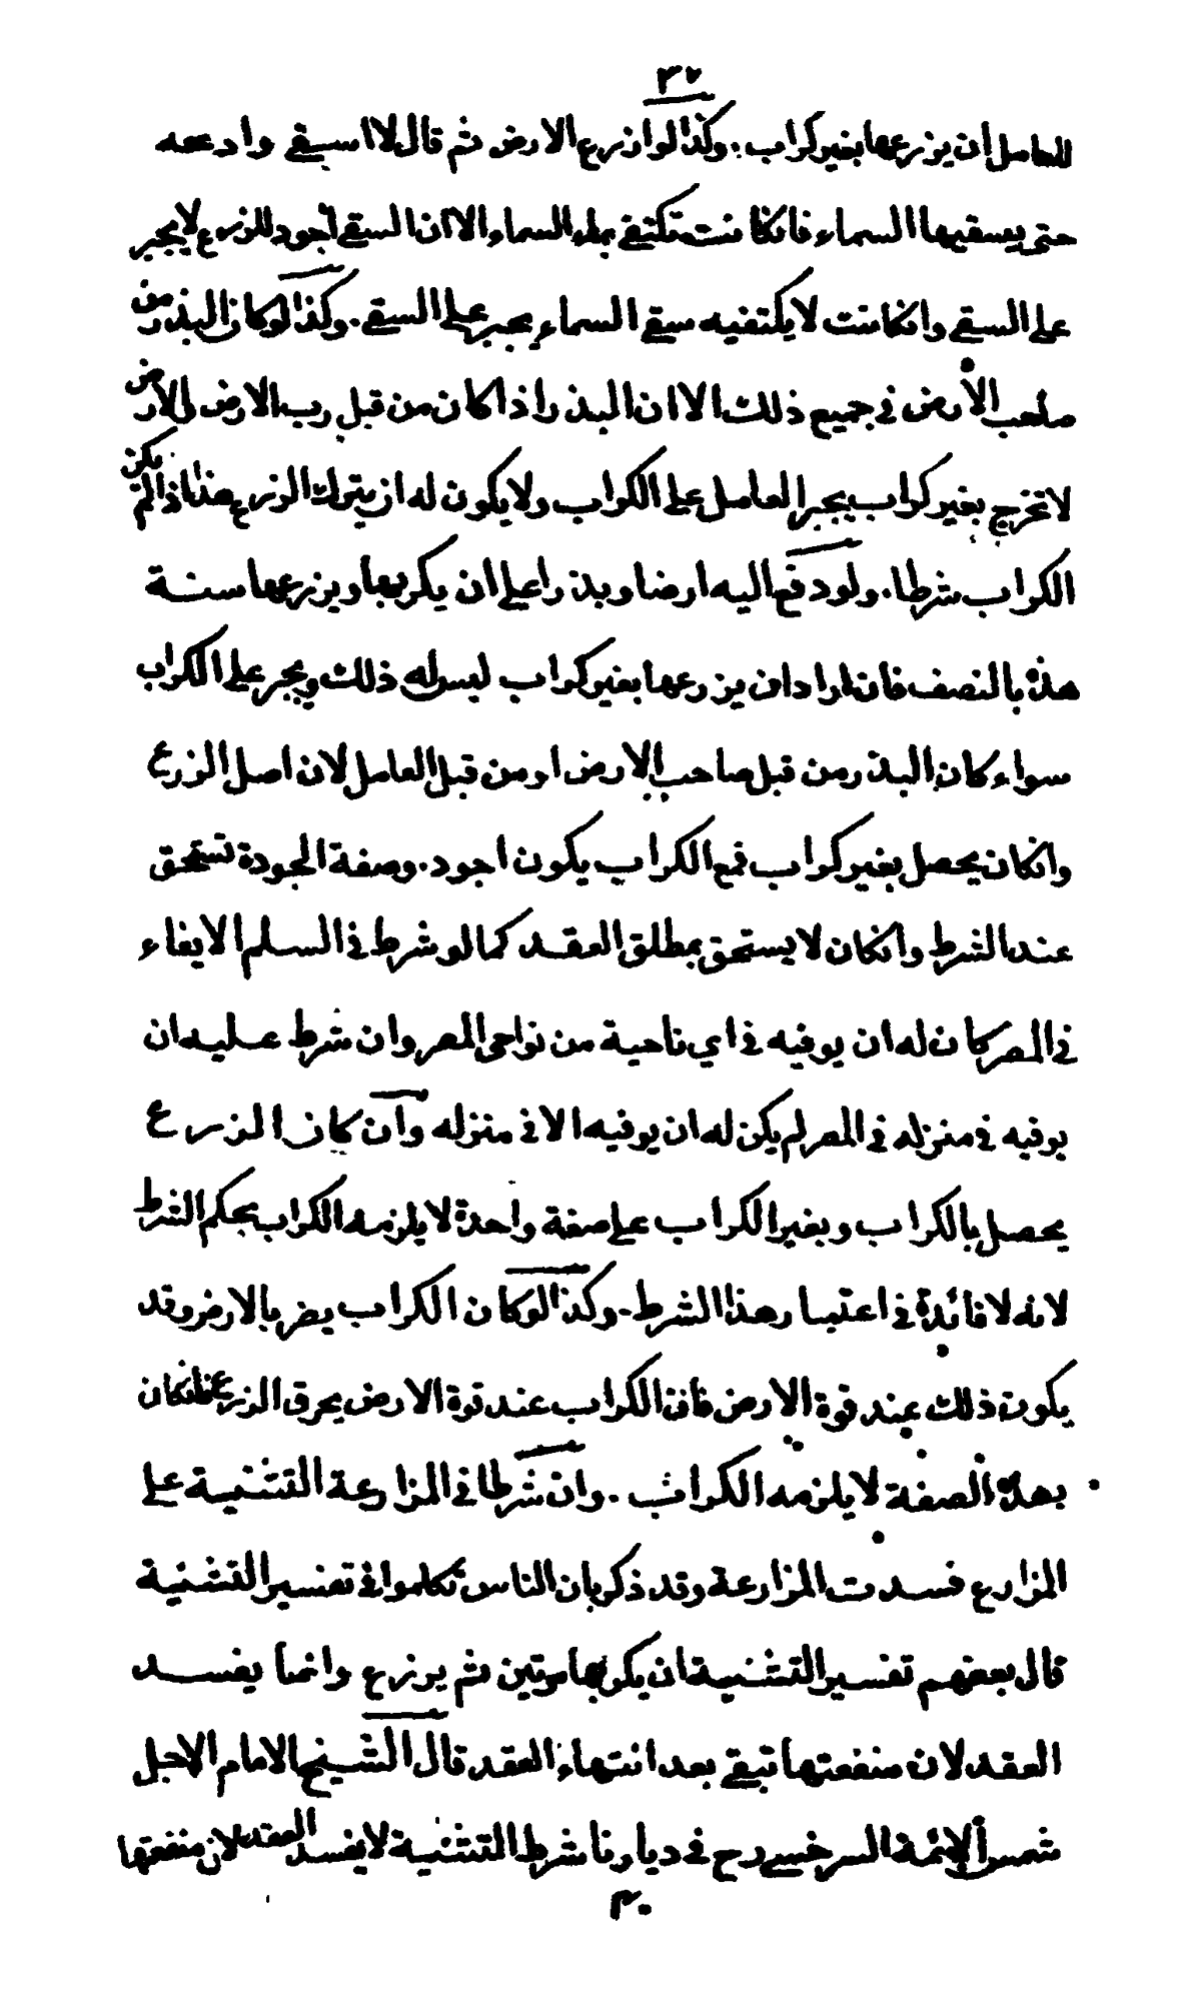 ٣٧
للعامل ان يزرعها بغير كراب . وكذا لو ازرع الارض ثم قال لا اسقى وادعه
حتى يسقيها السماء فان كانت تكتفى بماء السماء الا ان السقى اجود للزرع لا يجبر
على السقى وانكانت لا يكتفيه سقى السماء يجبر على السقى . وكذا لو كان البذر من
صاحب الأرض فى جميع ذلك الا ان البذر اذا كان من قبل رب الارض والارض
لا تخرج بغير كراب يجبر العامل على الكراب ولا يكون له ان يترك الزرع هذا اذا لم يكن
الكراب شرطا . ولو دفع اليه ارضا وبذرا على ان يكربها ويزرعها سنة
هذه بالنصف فان اراد ان يزرعها بغير كراب ليس له ذلك ويجبر على الكراب
سواء كان البذر من قبل صاحب الارض او من قبل العامل لان اصل الزرع
وانكان يحصل بغير كراب فمع الكراب يكون اجود . وصفة الجودة تستحق
عند الشرط وانكان لا يستحق بمطلق العقد كما لو شرط فى السلم الايفاء
فى المصر كان له ان يوفيه فى اي ناحية من نواحى المصر وان شرط عليه ان
يوفيه فى منزله فى المصر لم يكن له ان يوفيه الا فى منزله وان كان الزرع
يحصل بالكراب وبغير الكراب على صفة واحدة لا يلزمه الكراب بحكم الشرط
لانه لا فائدة فى اعتبار هذا الشرط . وكذا لو كان الكراب يضر بالارض وقد
يكون ذلك عند قوة الارض فان الكراب عند قوة الارض يحرق الزرع فانكان
بهذه الصفة لا يلزمه الكراب . وان شرطا فى المزارعة التثنية على
المزارع فسدت المزارعة وقد ذكر بان الناس تكلموا فى تفسير التثنية
قال بعضهم تفسير التثنية ان يكربها مرتين ثم يزرع وانما يفسد
العقد لان منفعتها تبقى بعد انتهاء العقد قال الشيخ الامام الاجل
شمس الائمة السرخسى رح فى ديارنا شرط التثنية لا يفسد العقد لان منفعتها
٣٠